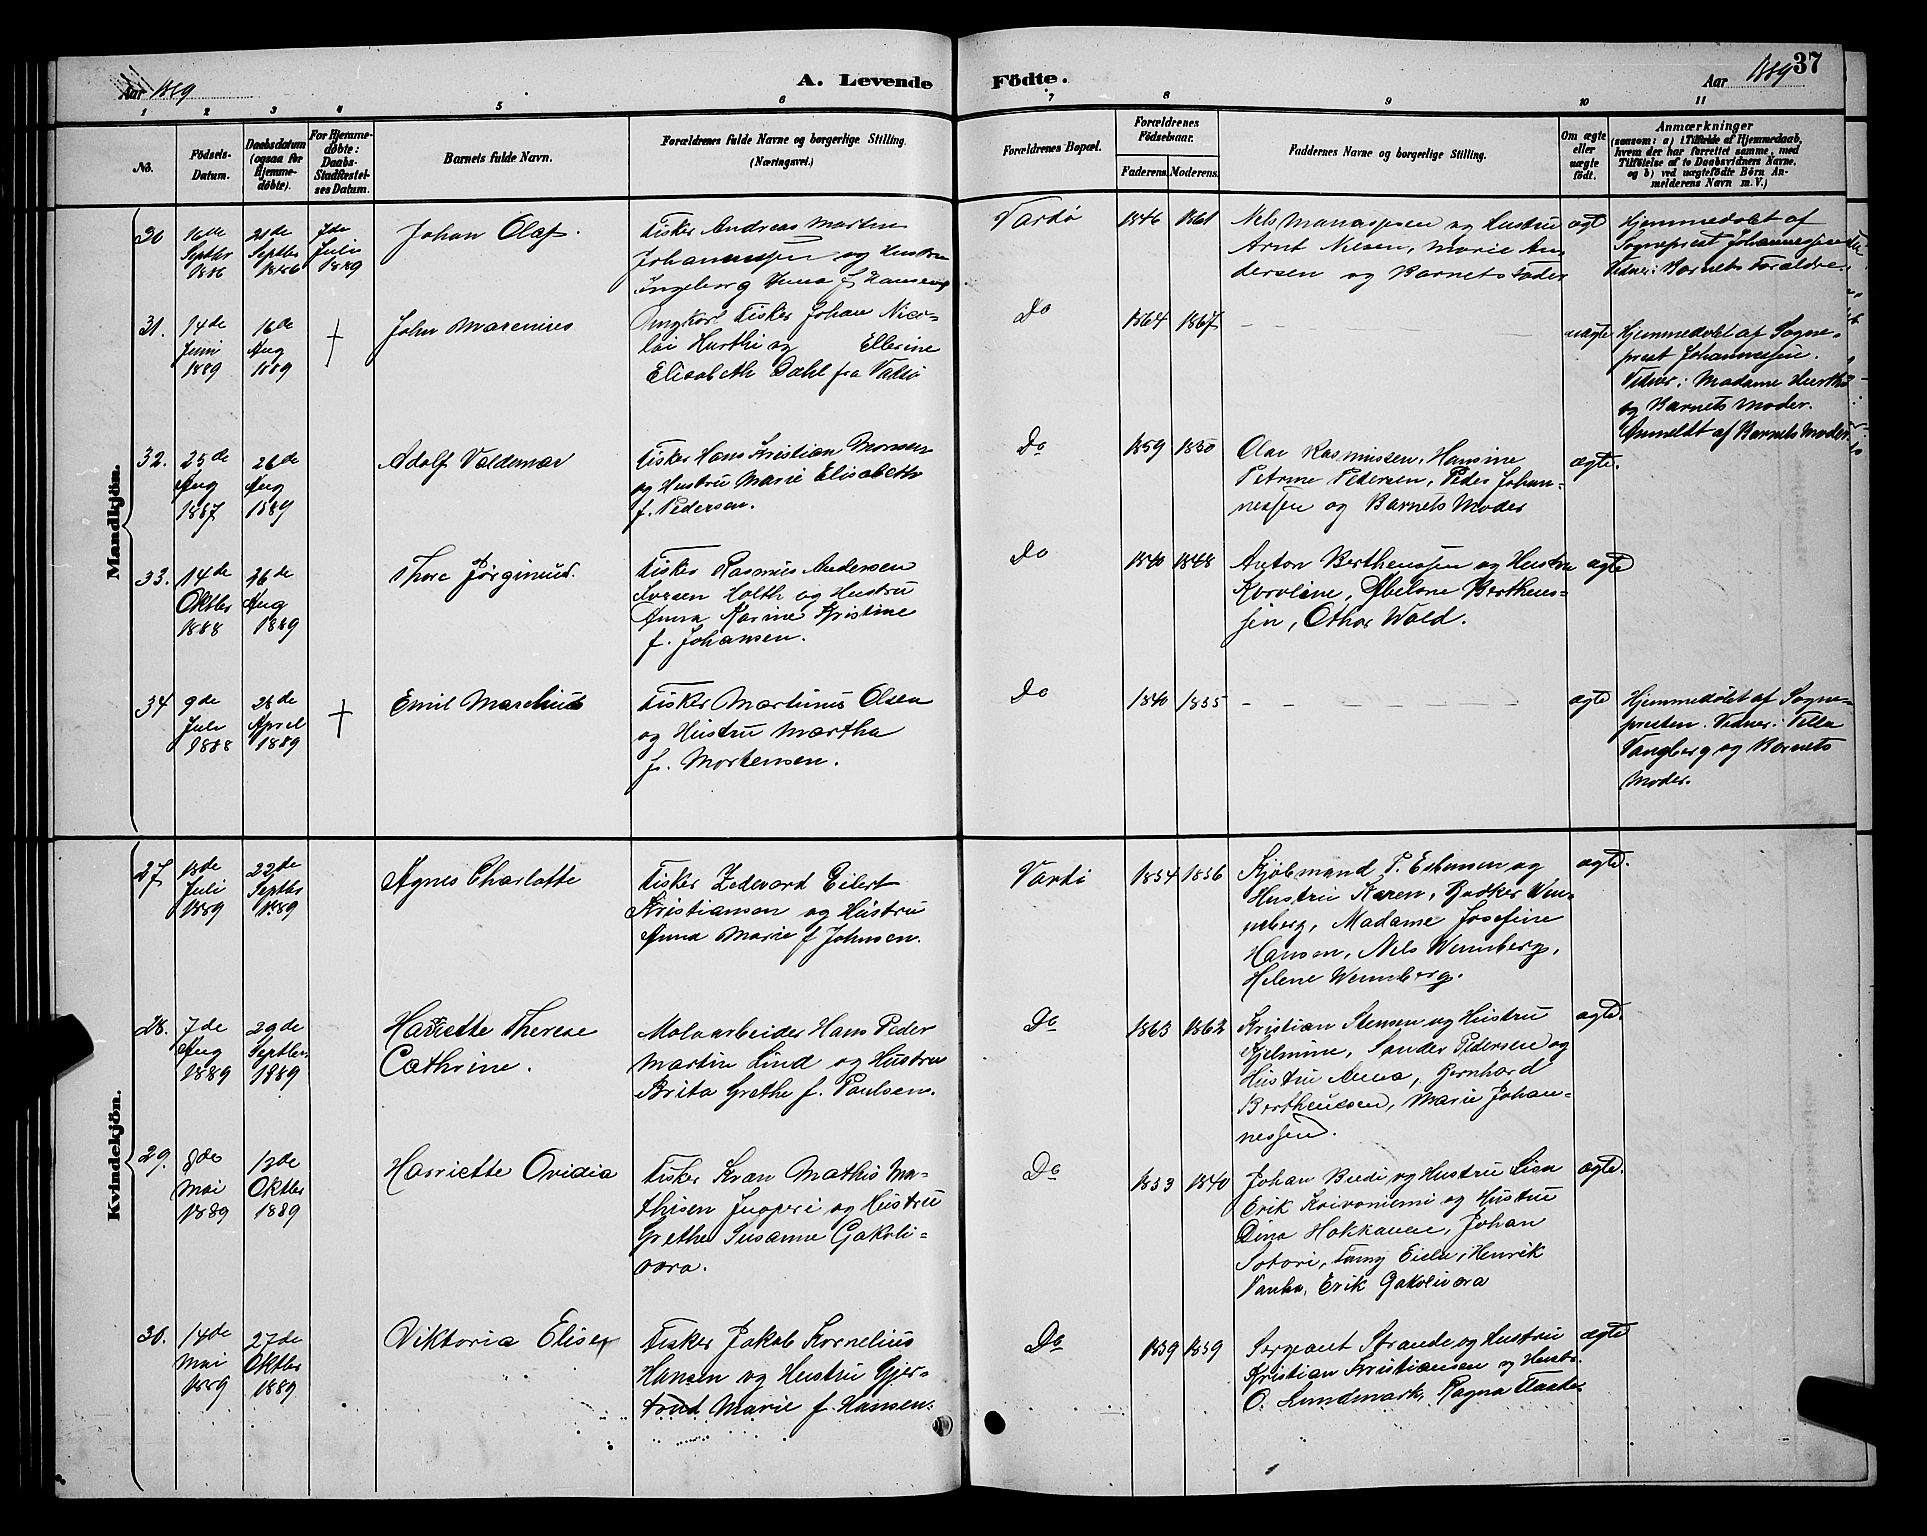 Aar 1889
A. Levende
Födte.
Aar 1889
37
1 2 3 4 5 6 7 8 9 10 11
No.
Födsels-
Datum.
Daabsdatum
(ogsaa for
Hjemme-
døbte).
For Hjemme-
døbte:
Daabs-
Stadfæstel-
ses Datum.
Barnets fulde Navn.
Forældrenes fulde Navne og borgerlige Stilling.
(Næringsvei.)
Forældrenes Bopæl.
Forældrenes
Födselsaar.
Faderens.
Moderens.
Faddernes Navne og borgerlige Stilling.
Om ægte
eller
uægte
födt.
Anmærkninger
(saasom: a) i Tilfælde af Hjemmedaab,
hvem der har forrettet samme, med
Tilföielse af to Daabsvidners Navne,
og b) ved uægtefödte Börn An-
melderens Navn m. V.)
Mandkjön.
30
16de
Septbr
1886
21de
Septbr
1886
7de
Juli
1889
Johan Olaf.
Fisker Andreas Martin
Johannessen og Hustru
Ingeborg Anna f. Hansen
Vardø
1846
1861
og Hustru
Arnt Nilsen, Marie An-
dersen og Barnets Fader
ægte
Hjemmedøbt af
Sogneprest Johannessen
Vidner: Barnets Forældre.
31.
14de
Juni
1889
16de
Aug
1889
†
John Marenius
Ungkarl Fisker Johan Nico-
lai Hurthi og Ellerine
Elisabeth Dahl fra Vadsø
Do
1864
1867
uægte
Hjemmedøbt af Sogne-
prest Johannessen.
Vidner: Madame Hurthi
og Barnets Moder.
Anmeldt af Barnets Moder.
32.
25de
Aug
1887
26de
Aug
1889
Adolf Valdemar
Fisker Hans Kristian Monsen
og Hustru Marie Elisabeth
f. Pedersen.
Do
1859
1850
Olar Rasmussen, Hansine
Petrine Pedersen, Peder Johan-
nessen og Barnets Moder
ægte.
33.
14de
Oktbr
1888
26de
Aug
1889
Thore Jørginius.
Fisker Rasmus Andersen
Iversen Holth og Hustru
Anna Karine Kristine
f. Johansen.
Do
1840
1848
Anton Berthenssen og Hustru
Karoline, Abelone Bertheus-
sen, Othar Wald.
ægte
34
9de
Juli
1888
28de
April
1889
†
Emil Marelius
Fisker Martinus Olsen
og Hustru Martha
f. Mortensen.
Do
1840
1855
ægte
Hjemmedøbt af Sogne-
presten. Vidner: Villa
Vangberg og Barnets
Moder.
Kvindekjön.
27
13de
Juli
1889
22de
Septbr
1889
Agnes Charlotte
Fisker Zedevard Eilert
Kristiansen og Hustru
Anna Marie f. Johnsen.
Vardø
1854
1856
Kjøbmand P. Esbensen og
Hustru Karen, Bødker Wen-
neberg, Madame Josefine
Hansen, Nils Wennberg,
Helene Wennberg.
ægte.
28.
7de
Aug
1889
29de
Septbr
1889
Harriette Therese
Cathrine.
Moloarbeider Hans Peder
Martin Lind og Hustru
Brita Grethe f. Paulsen.
Do
1863
1862
Kristian Stensen og Hustru
Hjelmine, Sander Pedersen og
Hustru Anna, Bernhard
Bertheussen, Marie Johan-
nessen.
ægte.
29.
8de
Mai
1889
13de
Oktbr
1889
Harriette Ovidia
Fisker Kvæn Mathis Ma-
thisen Juoperi og Hustru
Grethe Susanne Gakoli-
vara.
Do
1853
1840
Johan Budi og Hustru Lisa
Erik Koivoniemi og Hustru
Dina Hokkanen, Johan
Sotori, Fanny Henrik
Vanha, Erik Gakolivara
ægte.
30.
14de
Mai
1889
27de
Oktbr
1889
Viktoria Elise
Fisker Jakob Kornelius
Hansen og Hustru Gjer-
trud Marie f. Hansen.
Do
1859
1859
Sergeant Strande og Hustru
Kristian Kristiansen og Hustr.
O. Lundmark, Ragna Flaate
ægte